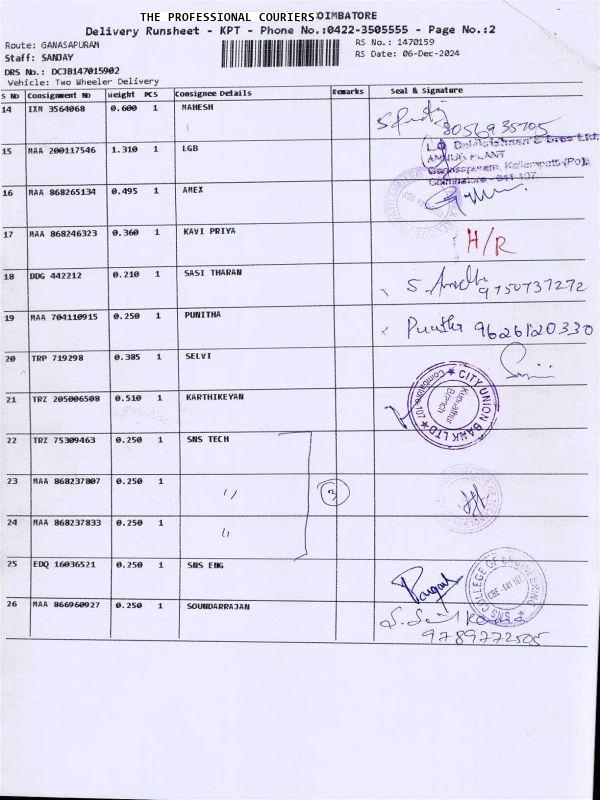 THE PROFESSIONAL COURIERS COIMBATORE
Delivery Runsheet - KPT - Phone No.:0422-3505555 - Page No.:2
Route: GANASAPURAM
RS No.: 1470159
Staff: SANJAY
RS Date: 06-Dec-2024
DRS No.: DCJB147015902
Vehicle: Two Wheeler Delivery
S No Consignment No Weight PCS Consignee Details Remarks Seal & Signature
14 IXM 3564068 0.600 1 MAHESH
8056935705
15 MAA 200117546 1.310 1 LGB
16 MAA 868265134 0.495 1 AMEX
17 MAA 868246323 0.360 1 KAVI PRIYA H/R
18 DDG 442212 0.210 1 SASI THARAN
9750737272
19 MAA 704110915 0.250 1 PUNITHA Punitha 9626120330
20 TRP 719298 0.385 1 SELVI
21 TRZ 205006508 0.510 1 KARTHIKEYAN
★ CITY UNION BANK LTD ★
Branch
22 TRZ 75309463 0.250 1 SNS TECH
23 MAA 868237807 0.250 1 〃 3
24 MAA 868237833 0.250 1 〃
25 EDQ 16036521 0.250 1 SNS ENG
SNS COLLEGE OF ENGINEERING
26 MAA 866960927 0.250 1 SOUNDARRAJAN
9789772505